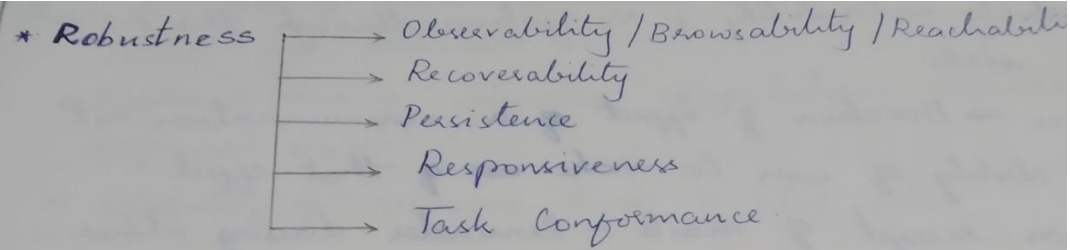 * Robustness → Observability / Browsability / Reachabili
→ Recoverability
→ Persistence
→ Responsiveness
→ Task Conformance